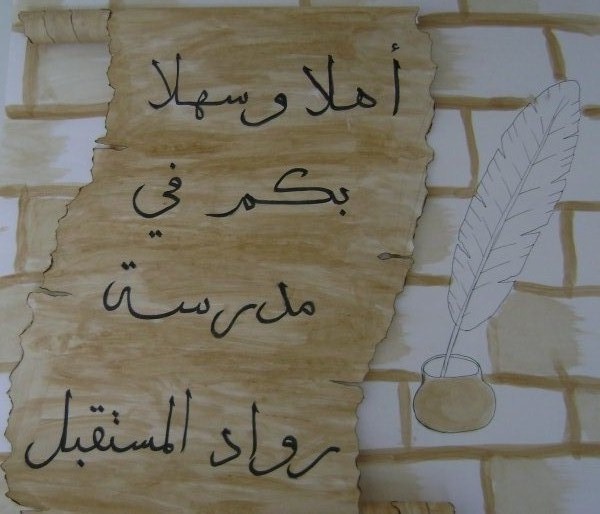 أهلا وسهلا
بكم في
مدرسة
رواد المستقبل